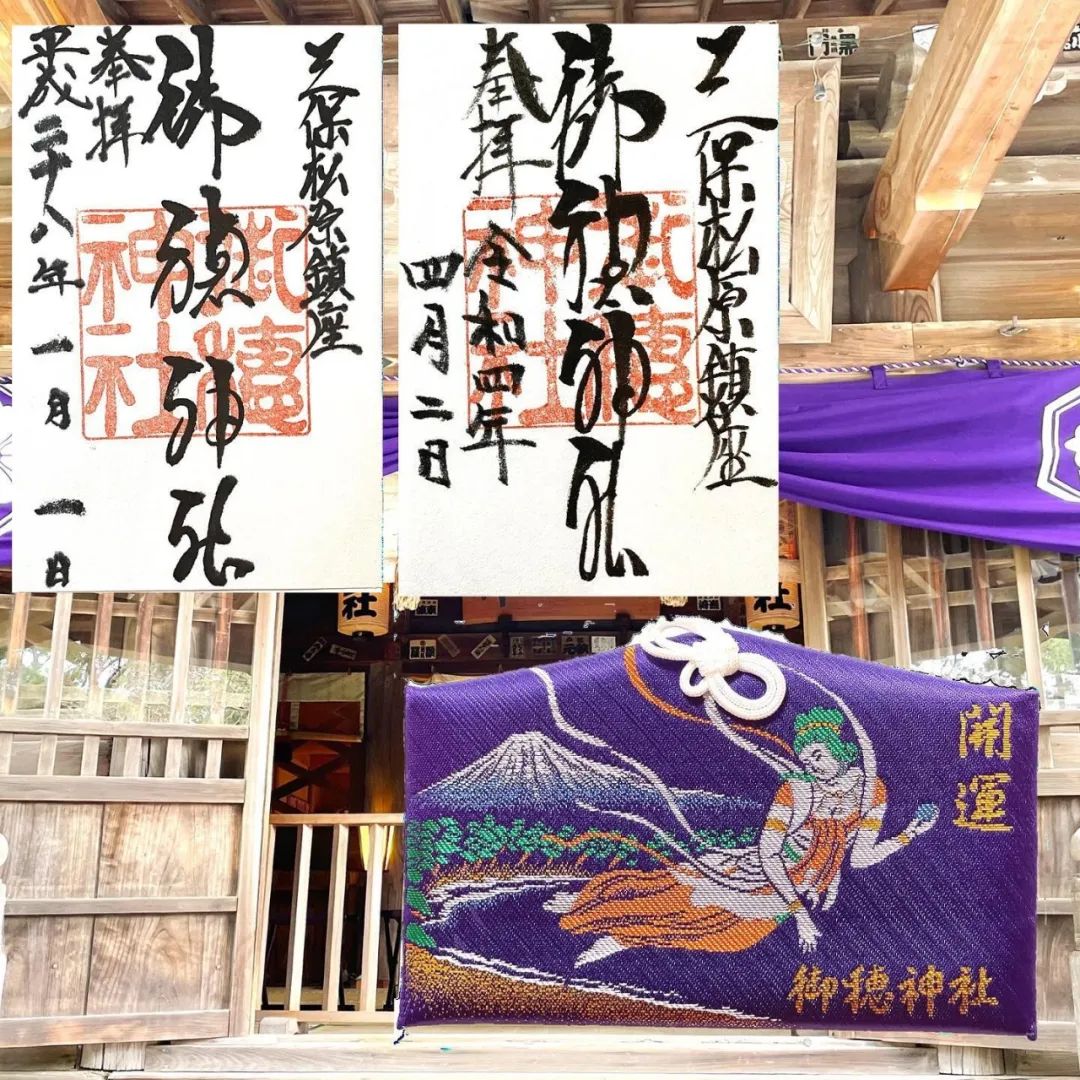 三保松原鎮座
御穂神社
奉拝
平成二十八年一月一日
御穂神社
三保松原鎮座
御穂神社
奉拝
令和四年
四月二日
御穂神社
社
社
開運
御穂神社